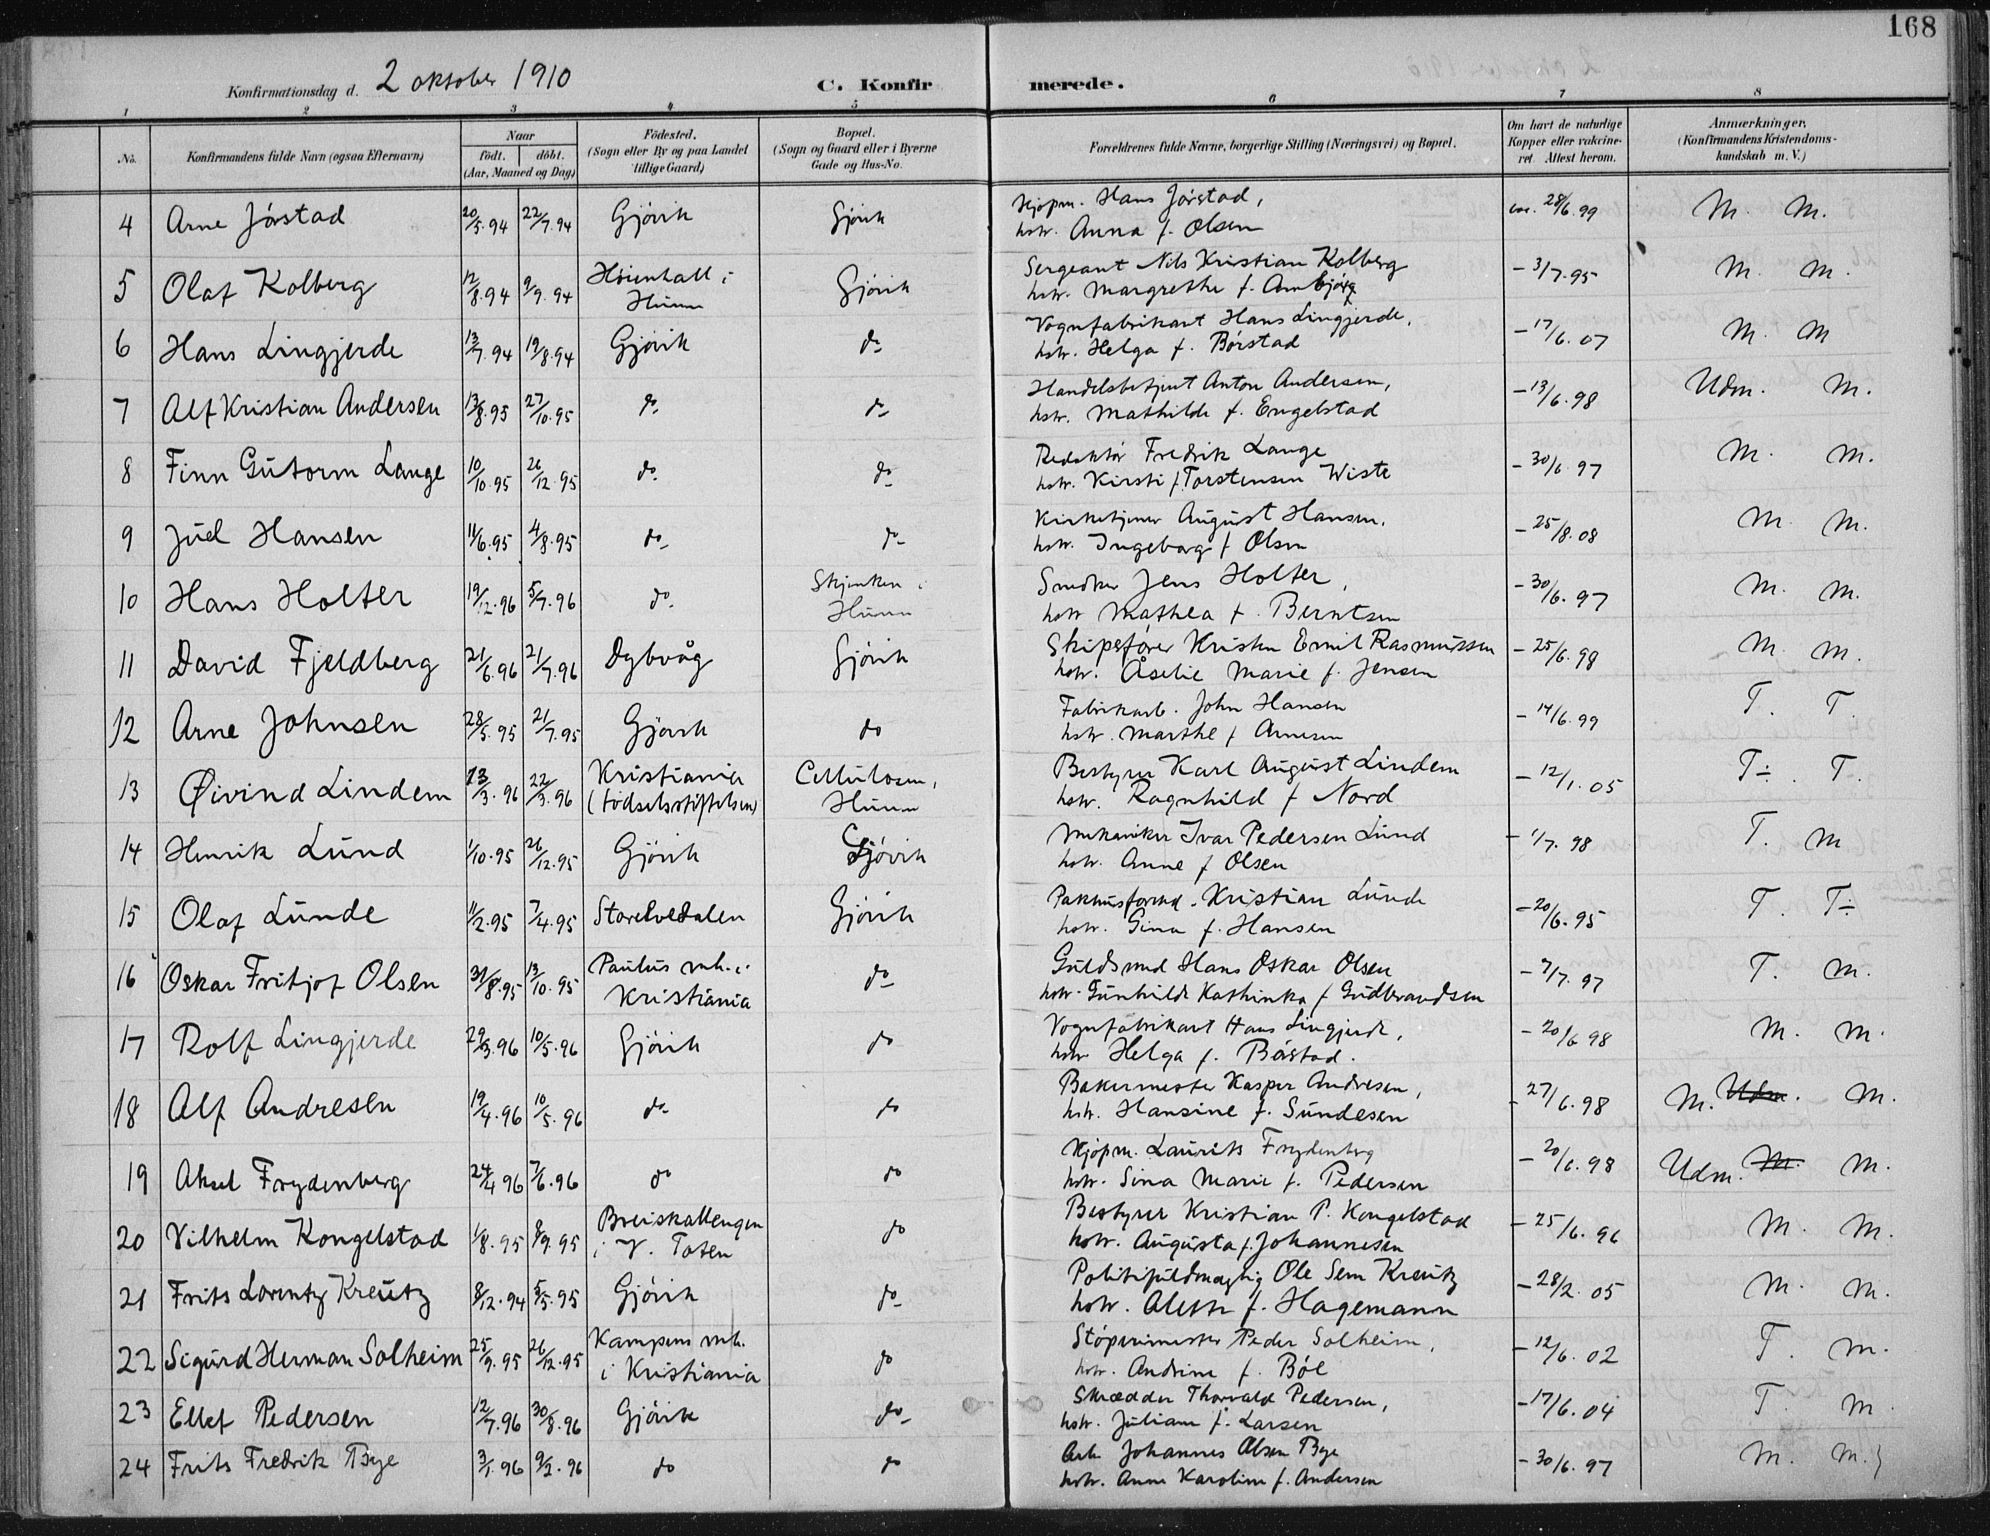 168
Konfirmationsdag d. 2 oktober 1910
C. Konfirmerede.
1 2 3 4 5 6 7 8
No. Konfirmandens fulde Navn (ogsaa Efternavn) Naar födt. döbt. (Aar, Maaned og Dag) Födested. (Sogn eller By og paa Landet tillige Gaard) Bopæl. (Sogn og Gaard eller i Byerne Gade og Hus-No. Forældrenes fulde Navne, borgerlige Stilling (Næringsvei) og Bopæl. Om havt de naturlige Kopper eller vakcineret. Attest herom. Anmærkninger. (Konfirmandens Kristendomskundskab m. V.)
4 Arne Jörstad 20/5.94 22/7.94 Gjövik Gjövik Kjøpm. Hans Jörstad, vac. 28/6.99 M. M.
hstr. Anna f. Olsen
5 Olaf Kolberg 12/8.94 9/9.94 Höienhall i Hunn Gjövik Sergeant Nils Kristian Kolberg - 3/7.95 M. M.
hstr. Margrethe f. Arnbjörg
6 Hans Lingjerde 13/7.94 19/8.94 Gjövik do Vognfabrikant Hans Lingjerde, - 17/6.07 M. M
hstr. Helga f. Börstad
7 Alf Kristian Andersen 13/8.95 27/10.95 do do Handelsbetjent Anton Andersen, - 13/6.98 Udm. M.
hstr. Mathilde f. Engelstad
8 Finn Gutorm Lange 10/10.95 26/12.95 do do Redaktör Fredrik Lange - 30/6.97 M. M.
hstr. Kirsti f. Torstensen Wiste
9 Juel Hansen 11/6.95 4/8.95 do do Kirketjener August Hansen, - 25/8.08 M. M.
hstr. Ingeborg f Olsen
10 Hans Holter 19/12.96 5/7.96 do Skjenken i Hunn Snedker Jens Holter, - 30/6.97 M. M.
hstr Mathea f. Berntsen
11 David Fjeldberg 21/6.96 21/7.96 Dybvåg Gjövik Skipsförer Kristen Emil Rasmussen - 25/6.98 M. M.
hstr. Åselie Marie f. Jensen
12 Arne Johnsen 28/5.95 21/7.95 Gjövik do Fabrikarb. John Hansen - 14/6.99 T. T.
hstr. Marthe f Arnesen
13 Øivind Lindem 13/3.96 22/3.96 Kristiania (Födselsstiftelsen) Cellulosen, Hunn Bestyrer Karl August Lindem - 12/1.05 T÷. T.
hstr. Ragnhild f Nord
14 Henrik Lund 1/10.95 26/12.95 Gjövik Gjövik Mekaniker Ivar Pedersen Lund - 1/7.98 T. M
hstr. Anne f Olsen
15 Olaf Lunde 11/2.95 7/4.95 Storelvedalen Gjövik Pakhusforvd. Kristian Lunde - 20/6.95 T. T÷
hstr. Gina f. Hansen
16 Oskar Fritjof Olsen 31/8.95 13/10.95 Paulus mh. i Kristiania do Guldsmed Hans Oskar Olsen - 7/7.97 T. M.
hstr. Gunhilde Kathinka f Gudbrandsen
17 Rolf Lingjerde 29/3.96 10/5.96 Gjövik do Vognfabrikant Hans Lingjerde, - 20/6 98 M. M.
hstr Helga f. Börstad.
18 Alf Andresen 19/4.96 10/5.96 do do Bakermester Kasper Andresen, - 27/6.98 M. Udm. M.
hstr. Hansine f. Sundesen
19 Aksel Frydenberg 24/4 96 7/6.96 do do Kjøpm. Laurits Frydenberg - 20/6.98 Udm. M. M.
hstr. Sina Marie f. Pedersen
20 Vilhelm Kongelstad 1/8.95 8/9.95 Breiskallengen i V. Toten do Bestyrer Kristian P. Kongelstad - 25/6.96 M. M.
hstr. Augusta f. Johannesen
21 Frits Lorentz Kreutz 8/12.94 5/5.95 Gjövik do Politifuldmægtig Ole Sem Kreutz - 28/2.05 M. M.
hstr. f. Hagemann
22 Sigurd Herman Solheim 25/9.95 26/12.95 Kampens mh. i Kristiania do Stöperimester Peder Solheim, - 12/6.02 T. M.
hstr. Andrine f. Böe
23 Ellef Pedersen 12/7.96 30/8.96 Gjövik do Skrædder Thorvald Pedersen, - 17/6.04 T. M.
hstr. Juliane f. Larsen
24 Frits Fredrik Bye 3/1.96 9/2.96 do do Arb. Johannes Olsen Bye - 30/6.97 M. M.
hstr. Anne Karoline f. Andersen